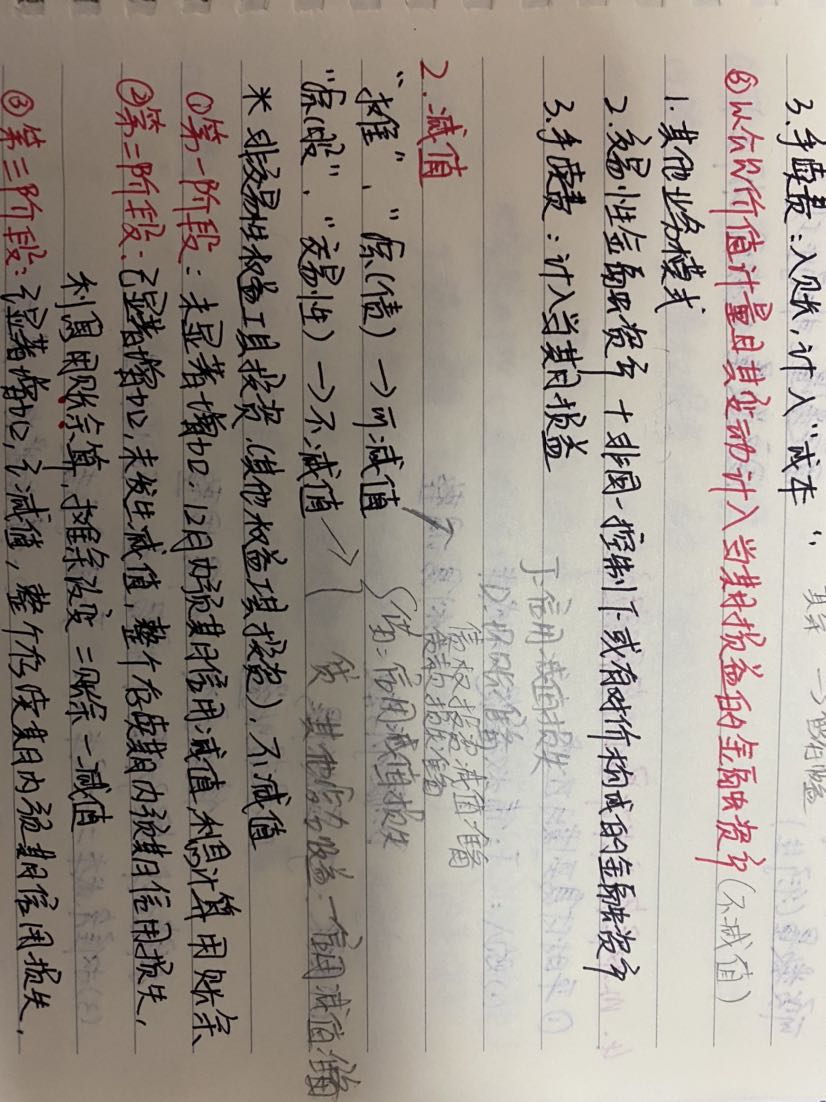 3.手续费:入账,计入"成本"
⑤以公允价值计量且其变动计入当期损益的金融资产(不减值)
1.其他业务模式
2.交易性金融资产+非同一控制下或有对价构成的金融资产
3.手续费:计入当期损益
信用减值损失
债权投资减值准备
2.减值
"摊"、"综(债)→可减值
借:信用减值损失
"综(股)"、"交易性)→不减值
贷:其他综合收益—信用减值准备
※非交易性权益工具投资(其他权益工具投资),不减值
①第一阶段:未显著增加:12月内预期信用减值,利息计算用账余
②第二阶段:已显著增加,未发生减值,整个存续期内预期信用损失,
利息用账余算,摊余改变=账余-减值
③第三阶段:已显著增加,已减值,整个存续期内预期信用损失,